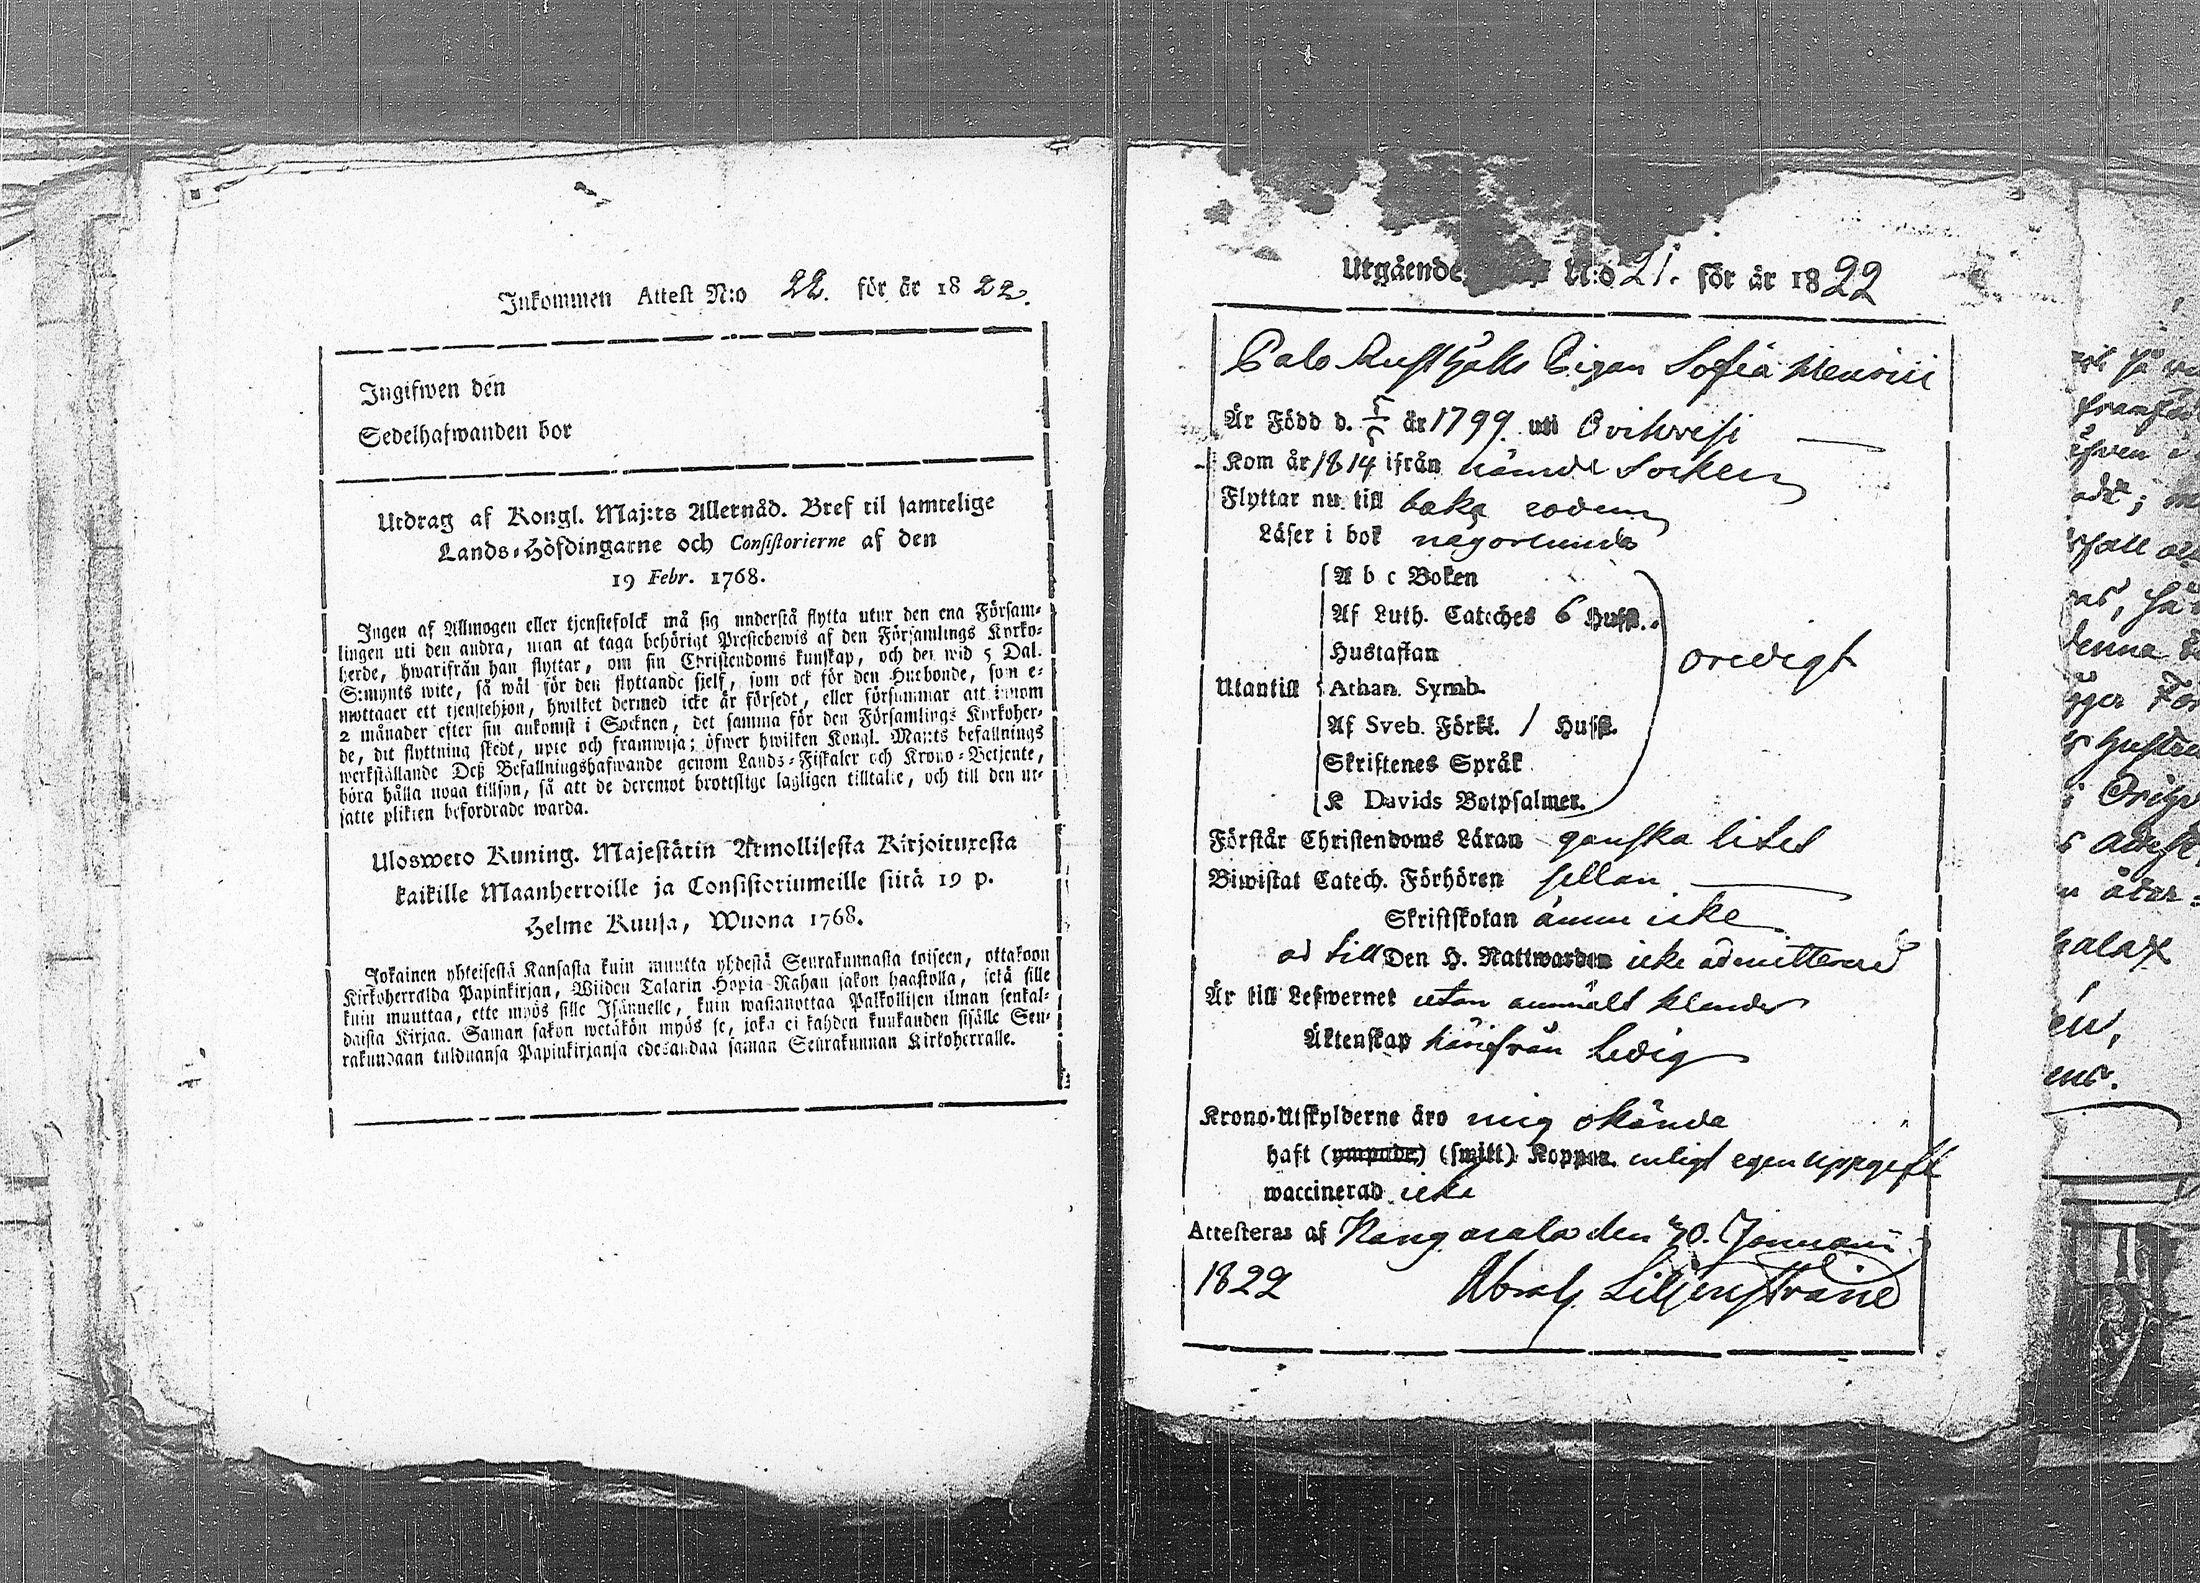 Inkommen Attest N:o 22. för år 1822.
Ingifwen den
Sedelhafwanden bor
Utdrag af Kongl. Maj:ts Allernåd. Bref til samtelige
Lands-Höfdingarne och Consistorierne af den
19 Febr. 1768.
Ingen af Allmogen eller tjenstefolck må sig understå flytta utur den ena Försam-
lingen uti den andra, utan at taga behörigt Prestebewis af den Församlings Kyrko-
herde, hwarifrån han flyttar, om sin Christendoms kunskap, och det wid 5 Dal.
S:mynts wite, så wäl för den flyttande sjelf, som ock för den Husbonde, som e-
mottager ett tjenstehjon, hwilket dermed icke är försedt, eller försummar att innom
2 månader efter sin ankomst i Socknen, det samma för den Församlings Kyrkoher-
de, dit flyttning skedt, upte och framwisa; öfwer hwilken Kongl. Maj:ts befallnings
werkställande Deß Befallningshafwande genom Lands-Fiskaler och Krono-Betjente,
böra hålla noga tillsyn, så att de deremot brottslige lagligen tilltalte, och till den ut-
satte plikten befordrade warda.
Ulosweto Kuning. Majestätin Armollisesta Kirjoituxesta
kaikille Maanherroille ja Consistoriumeille siitä 19 p.
Helme Kuusa, Wuona 1768.
Jokainen yhteisestä Kansasta kuin muutta yhdestä Seurakunnasta toiseen, ottakoon
Kirkoherralda Papinkirjan, Wiiden Talarin Hopia-Rahan sakon haastolla, setä sille
kuin muuttaa, ette myös sille Isännelle, kuin wastanottaa Palkollisen ilman senkal-
daista Kirjaa. Saman sakon wetäkön myös se, joka ei kahden kuukauden sisälle Seu-
rakundaan tulduansa Papinkirjansa edesandaa saman Seurakunnan Kirkoherralle.
Utgående N:o 21. för år 1822
Palo Rusthålls Pigan Sofia
Är Född d. 5/5 år 1799 uti Orihvesi
Kom år 1814 ifrån nämde Socken
Flyttar nu till baka
Läser i bok någorlunda
A b c Boken
Af Luth. Cateches 6 Hufst.
Hustaflan
Utantill Athan. Symb. oredigt
Af Sveb. Förkl. 1 Hufst.
Skriftenes Språk
K Davids Botpsalmer.
Förstår Christendoms Läran ganska litet
Biwistat Catech. Förhören sellan
Skriftskolan ännu icke
och till Den H. Nattwarden icke admitterad
Är till Lefwernet utan anmält klander
Äktenskap härifrån ledig
Krono-Utskylderne äro mig okände
haft (ympade) (smitt) Koppor enligt egen uppgift
waccinerad icke
Attesteras af Kangasala den 30. Januarii
1822 Abrah. Liljenstrand